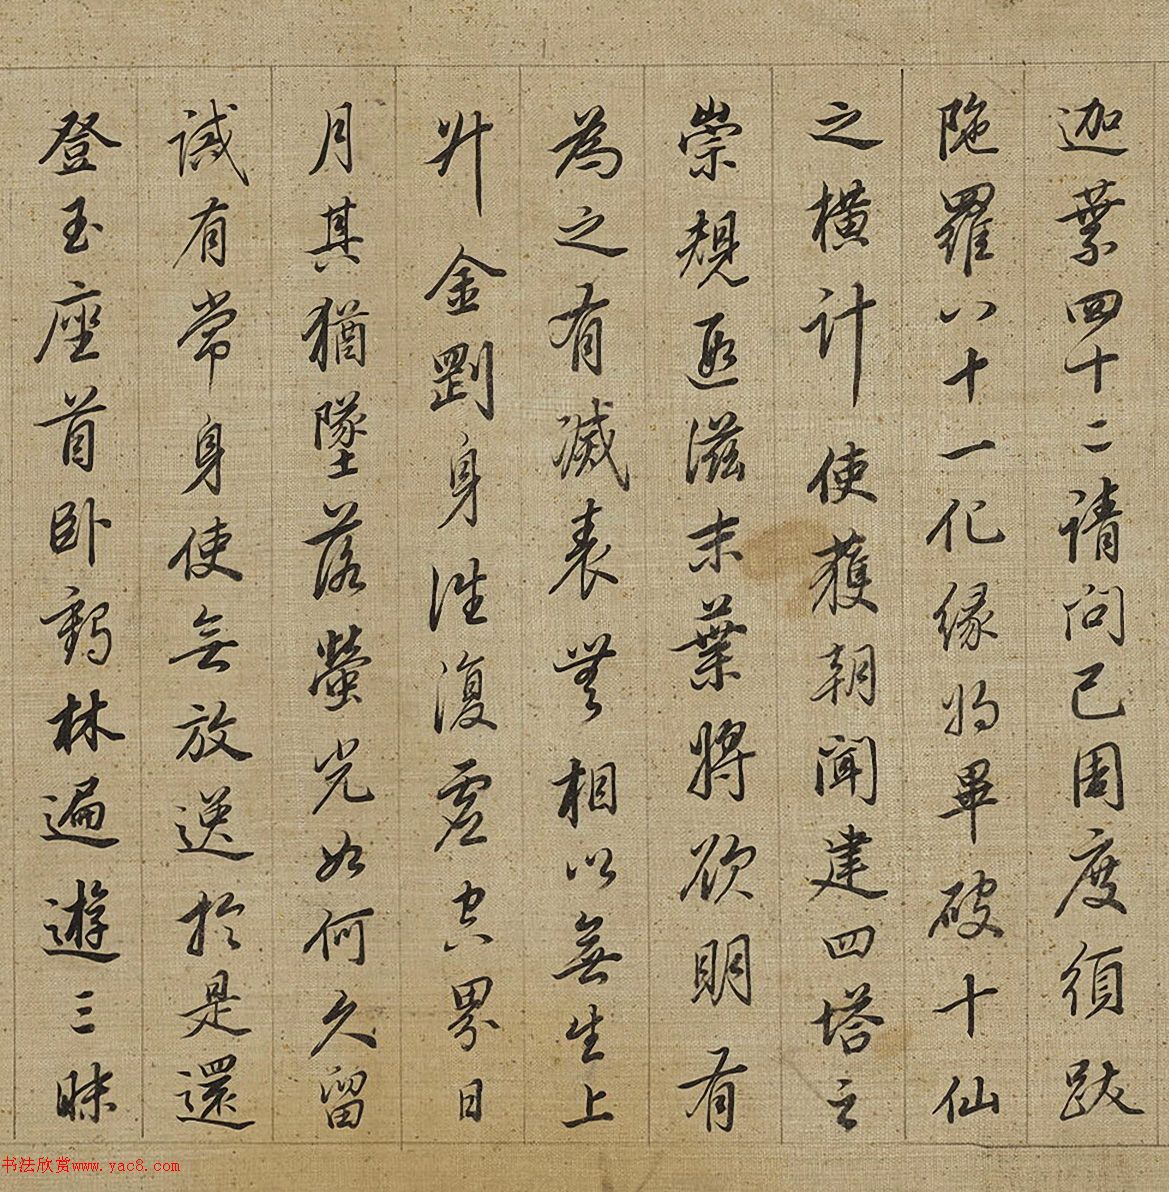 迦葉四十二請問已周度須跋
陁羅八十一化緣將畢破十仙
之橫計使獲朝聞建四塔之
崇規逈滋末葉將欲明有
為之有滅表無相以無生上
升金剛身往復虛空界日
月其猶墜落螢光如何久留
誡有常身使無放逸於是還
登玉座首卧鶴林遍遊三昧
书法欣赏www.yac8.com